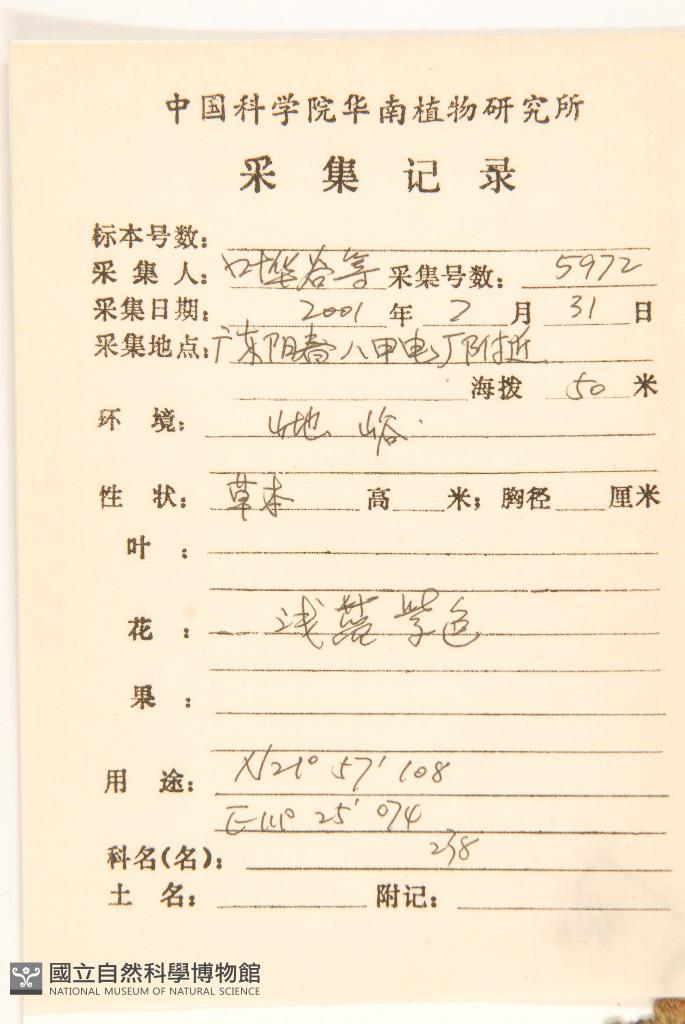 中国科学院华南植物研究所
采集记录
标本号数:
采集人: 叶华谷等 采集号数: 5972
采集日期: 2001 年 7 月 31 日
采集地点: 广东阳春八甲电厂附近
海拨 50 米
环境: 山地 山谷.
性状: 草本 高 米; 胸径 厘米
叶:
花: 浅蓝紫色
果:
用途: N21° 57′ 108
E111° 25′ 074
科名(名): 238
土名: 附记:
國立自然科學博物館
NATIONAL MUSEUM OF NATURAL SCIENCE